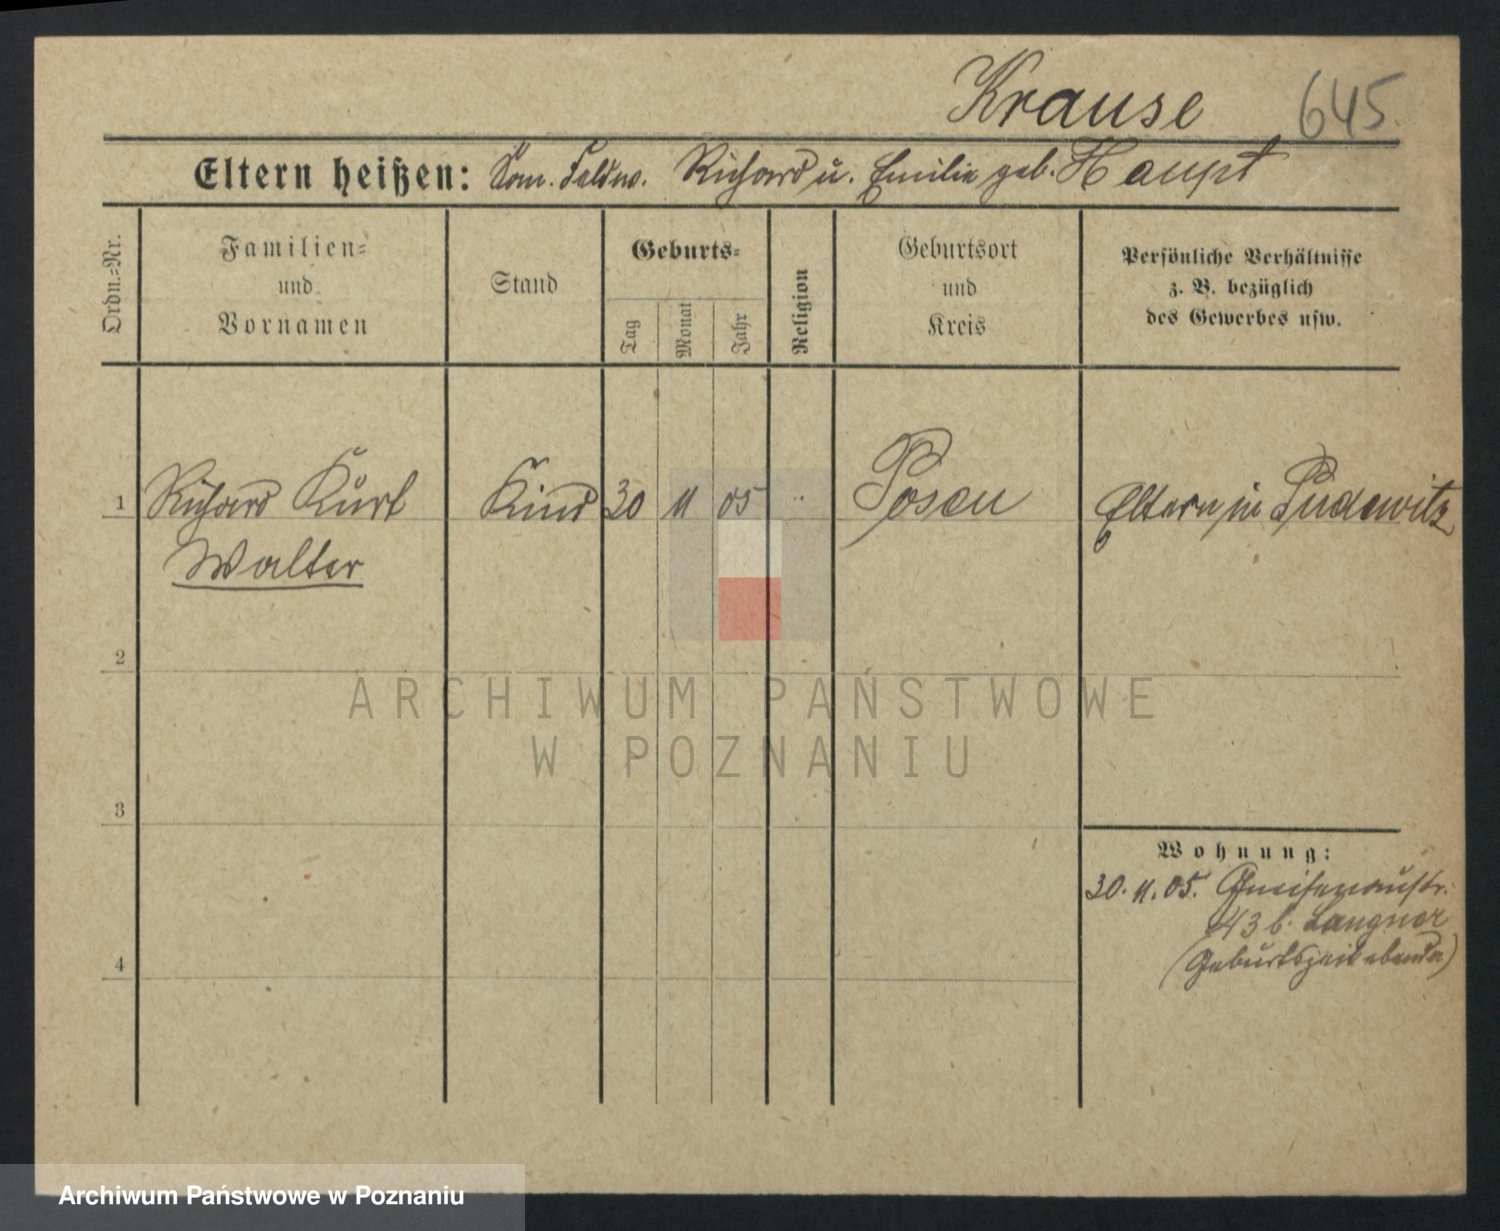 Krause 645
Eltern heißen: Feldw. Richard u. Emilie geb. Haupt
Ordn.=Nr.
Familien=
und
Vornamen
Stand
Geburts=
Tag
Monat
Jahr
Religion
Geburtsort
und
Kreis
Persönliche Verhältnisse
z. B. bezüglich
des Gewerbes usw.
1 Richard Kurt Kind 30 11 05 Posen Eltern in Pudewitz
Walter
2
3
4
Wohnung:
30. 11. 05. Gneisenaustr.
43 b. Langner
(Geburtszeit ebenda)
ARCHIWUM PAŃSTWOWE
W POZNANIU
Archiwum Państwowe w Poznaniu